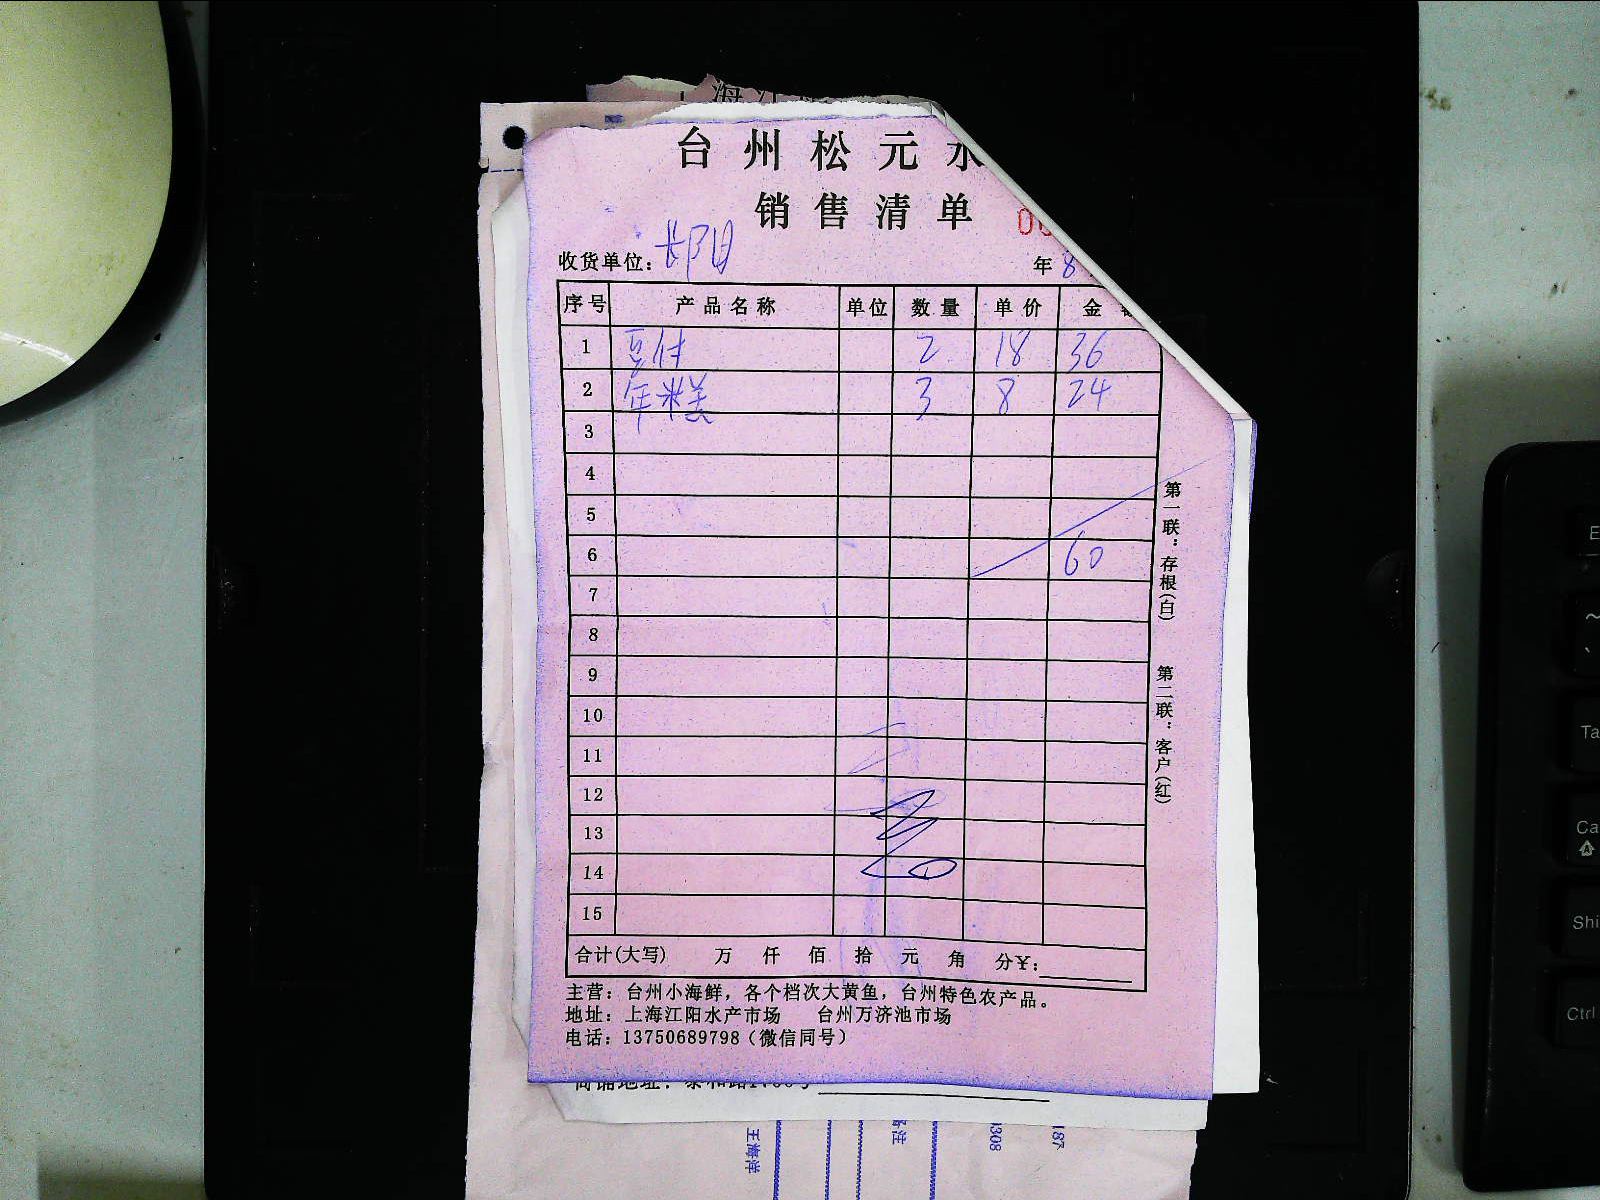 台州松元水
销售清单
收货单位: 长阳 年 8
序号 产品名称 单位 数量 单价 金
1 豆付 2 18 36
2 年糕 3 8 24
3
4
5
6 60
7
8
9
10
11
12
13
14
15
合计(大写) 万 仟 佰 拾 元 角 分¥:
主营：台州小海鲜，各个档次大黄鱼，台州特色农产品。
地址：上海江阳水产市场 台州万济池市场
电话：13750689798（微信同号）
第一联：存根(白) 第二联：客户(红)
王海洋
备注
1308
187
Ta
Ca
Shi
Ctrl